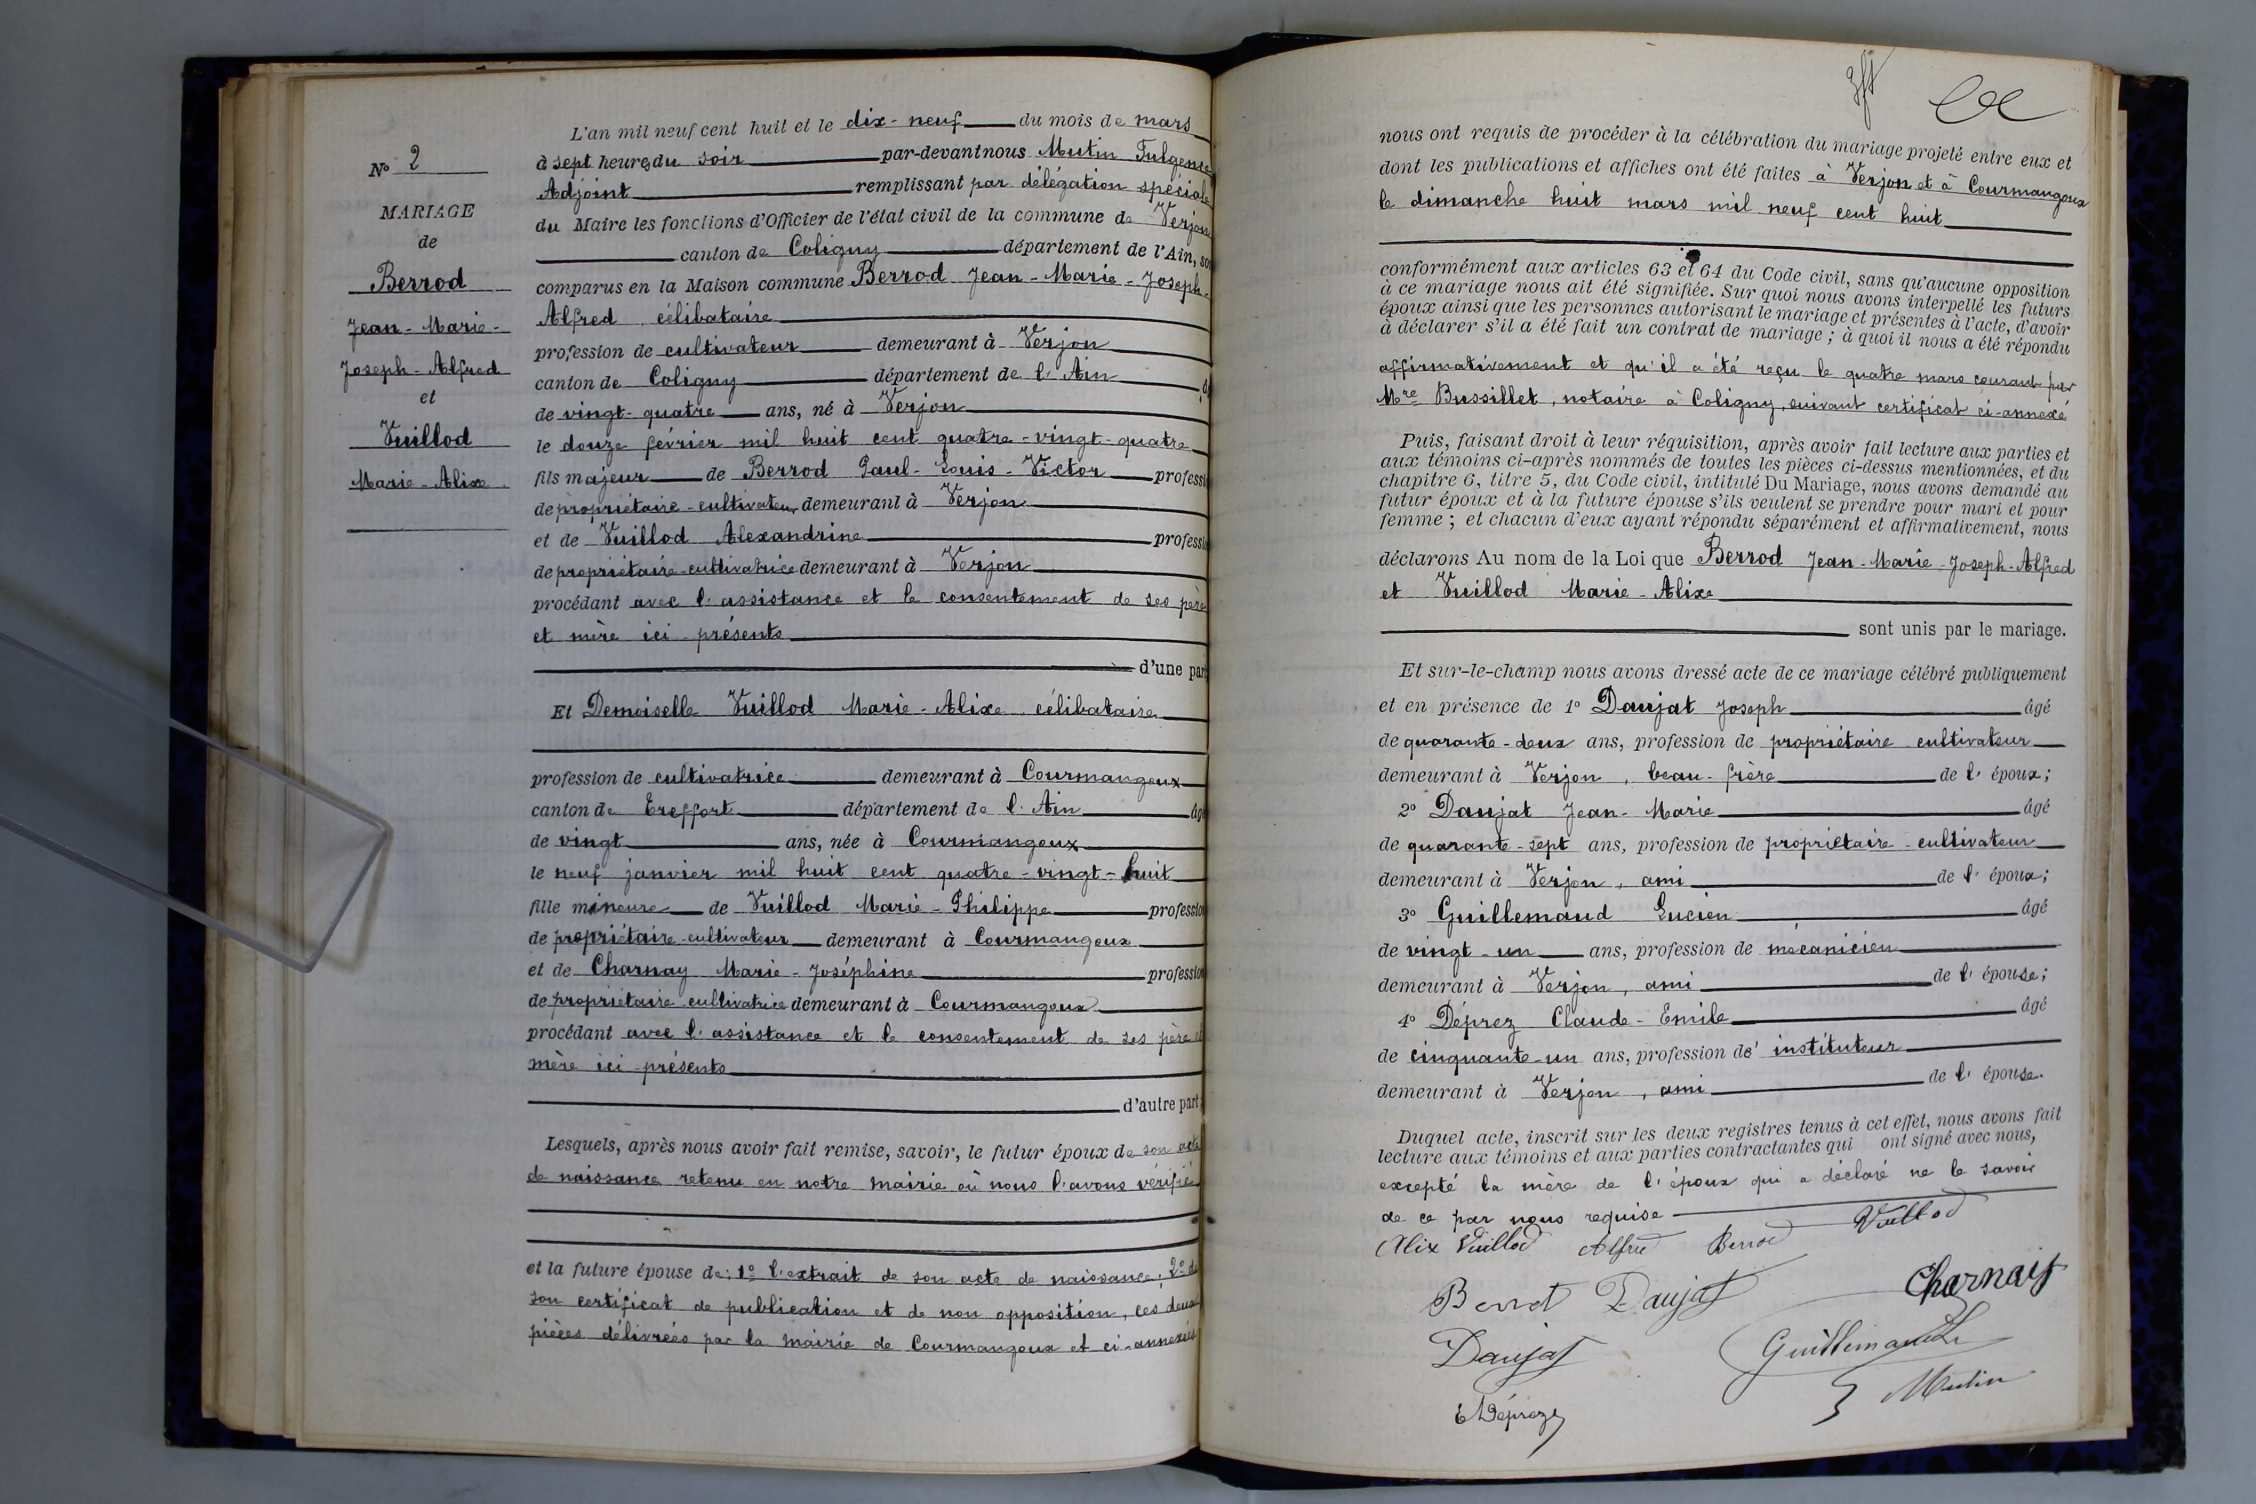 N° 2
MARIAGE
de
Berrod
Jean-Marie-
Joseph-Alfred
et
Vuillod
Marie-Alixe
L'an mil neuf cent huit et le dix-neuf du mois de mars
à sept heures du soir par-devant nous Mutin Fulgence
Adjoint remplissant par délégation spéciale
du Maire les fonctions d'Officier de l'état civil de la commune de Verjon
canton de Coligny département de l'Ain, son
comparus en la Maison commune Berrod Jean-Marie-Joseph-
Alfred célibataire
profession de cultivateur demeurant à Verjon
canton de Coligny département de l'Ain âg
de vingt-quatre ans, né à Verjon
le douze février mil huit cent quatre-vingt-quatre
fils majeur de Berrod Paul-Louis-Victor professi
de propriétaire-cultivateur demeurant à Verjon
et de Vuillod Alexandrine professio
de propriétaire-cultivatrice demeurant à Verjon
procédant avec l'assistance et le consentement de ses père
et mère ici-présents
d'une part
Et Demoiselle Vuillod Marie-Alixe célibataire
profession de cultivatrice demeurant à Courmangoux
canton de Treffort département de l'Ain âgé
de vingt ans, née à Courmangoux
le neuf janvier mil huit cent quatre-vingt-huit
fille mineure de Vuillod Marie-Philippe profession
de propriétaire-cultivateur demeurant à Courmangoux
et de Charnay Marie-Joséphine profession
de propriétaire cultivatrice demeurant à Courmangoux
procédant avec l'assistance et le consentement de ses père et
mère ici-présents
d'autre part
Lesquels, après nous avoir fait remise, savoir, le futur époux de son acte
de naissance retenu en notre mairie où nous l'avons vérifié
et la future épouse de: 1° l'extrait de son acte de naissance; 2° de
son certificat de publication et de non opposition, ces deux
pièces délivrées par la mairie de Courmangoux et ci-annexées
nous ont requis de procéder à la célébration du mariage projeté entre eux et
dont les publications et affiches ont été faites à Verjon et à Courmangoux
le dimanche huit mars mil neuf cent huit
conformément aux articles 63 et 64 du Code civil, sans qu'aucune opposition
à ce mariage nous ait été signifiée. Sur quoi nous avons interpellé les futurs
époux ainsi que les personnes autorisant le mariage et présentes à l'acte, d'avoir
à déclarer s'il a été fait un contrat de mariage; à quoi il nous a été répondu
affirmativement et qu'il a été reçu le quatre mars courant par
Mre Bussillet, notaire à Coligny, suivant certificat ci-annexé
Puis, faisant droit à leur réquisition, après avoir fait lecture aux parties et
aux témoins ci-après nommés de toutes les pièces ci-dessus mentionnées, et du
chapitre 6, titre 5, du Code civil, intitulé Du Mariage, nous avons demandé au
futur époux et à la future épouse s'ils veulent se prendre pour mari et pour
femme; et chacun d'eux ayant répondu séparément et affirmativement, nous
déclarons Au nom de la Loi que Berrod Jean-Marie-Joseph-Alfred
et Vuillod Marie-Alixe
sont unis par le mariage.
Et sur-le-champ nous avons dressé acte de ce mariage célébré publiquement
et en présence de 1° Daujat Joseph âgé
de quarante-deux ans, profession de propriétaire cultivateur
demeurant à Verjon, beau-frère de l'époux;
2° Daujat Jean-Marie âgé
de quarante-sept ans, profession de propriétaire-cultivateur
demeurant à Verjon, ami de l'époux;
3° Guillemaud Lucien âgé
de vingt-un ans, profession de mécanicien
demeurant à Verjon, ami de l'épouse;
4° Déprez Claude-Emile âgé
de cinquante-un ans, profession de instituteur
demeurant à Verjon, ami de l'épouse.
Duquel acte, inscrit sur les deux registres tenus à cet effet, nous avons fait
lecture aux témoins et aux parties contractantes qui ont signé avec nous,
excepté la mère de l'époux qui a déclaré ne le savoir
de ce par nous requise
Alix Vuillod Alfred Berrod Vuillod
Berrod Daujat Charnay
Daujat Guillemaud L.
Mutin
E Déprez